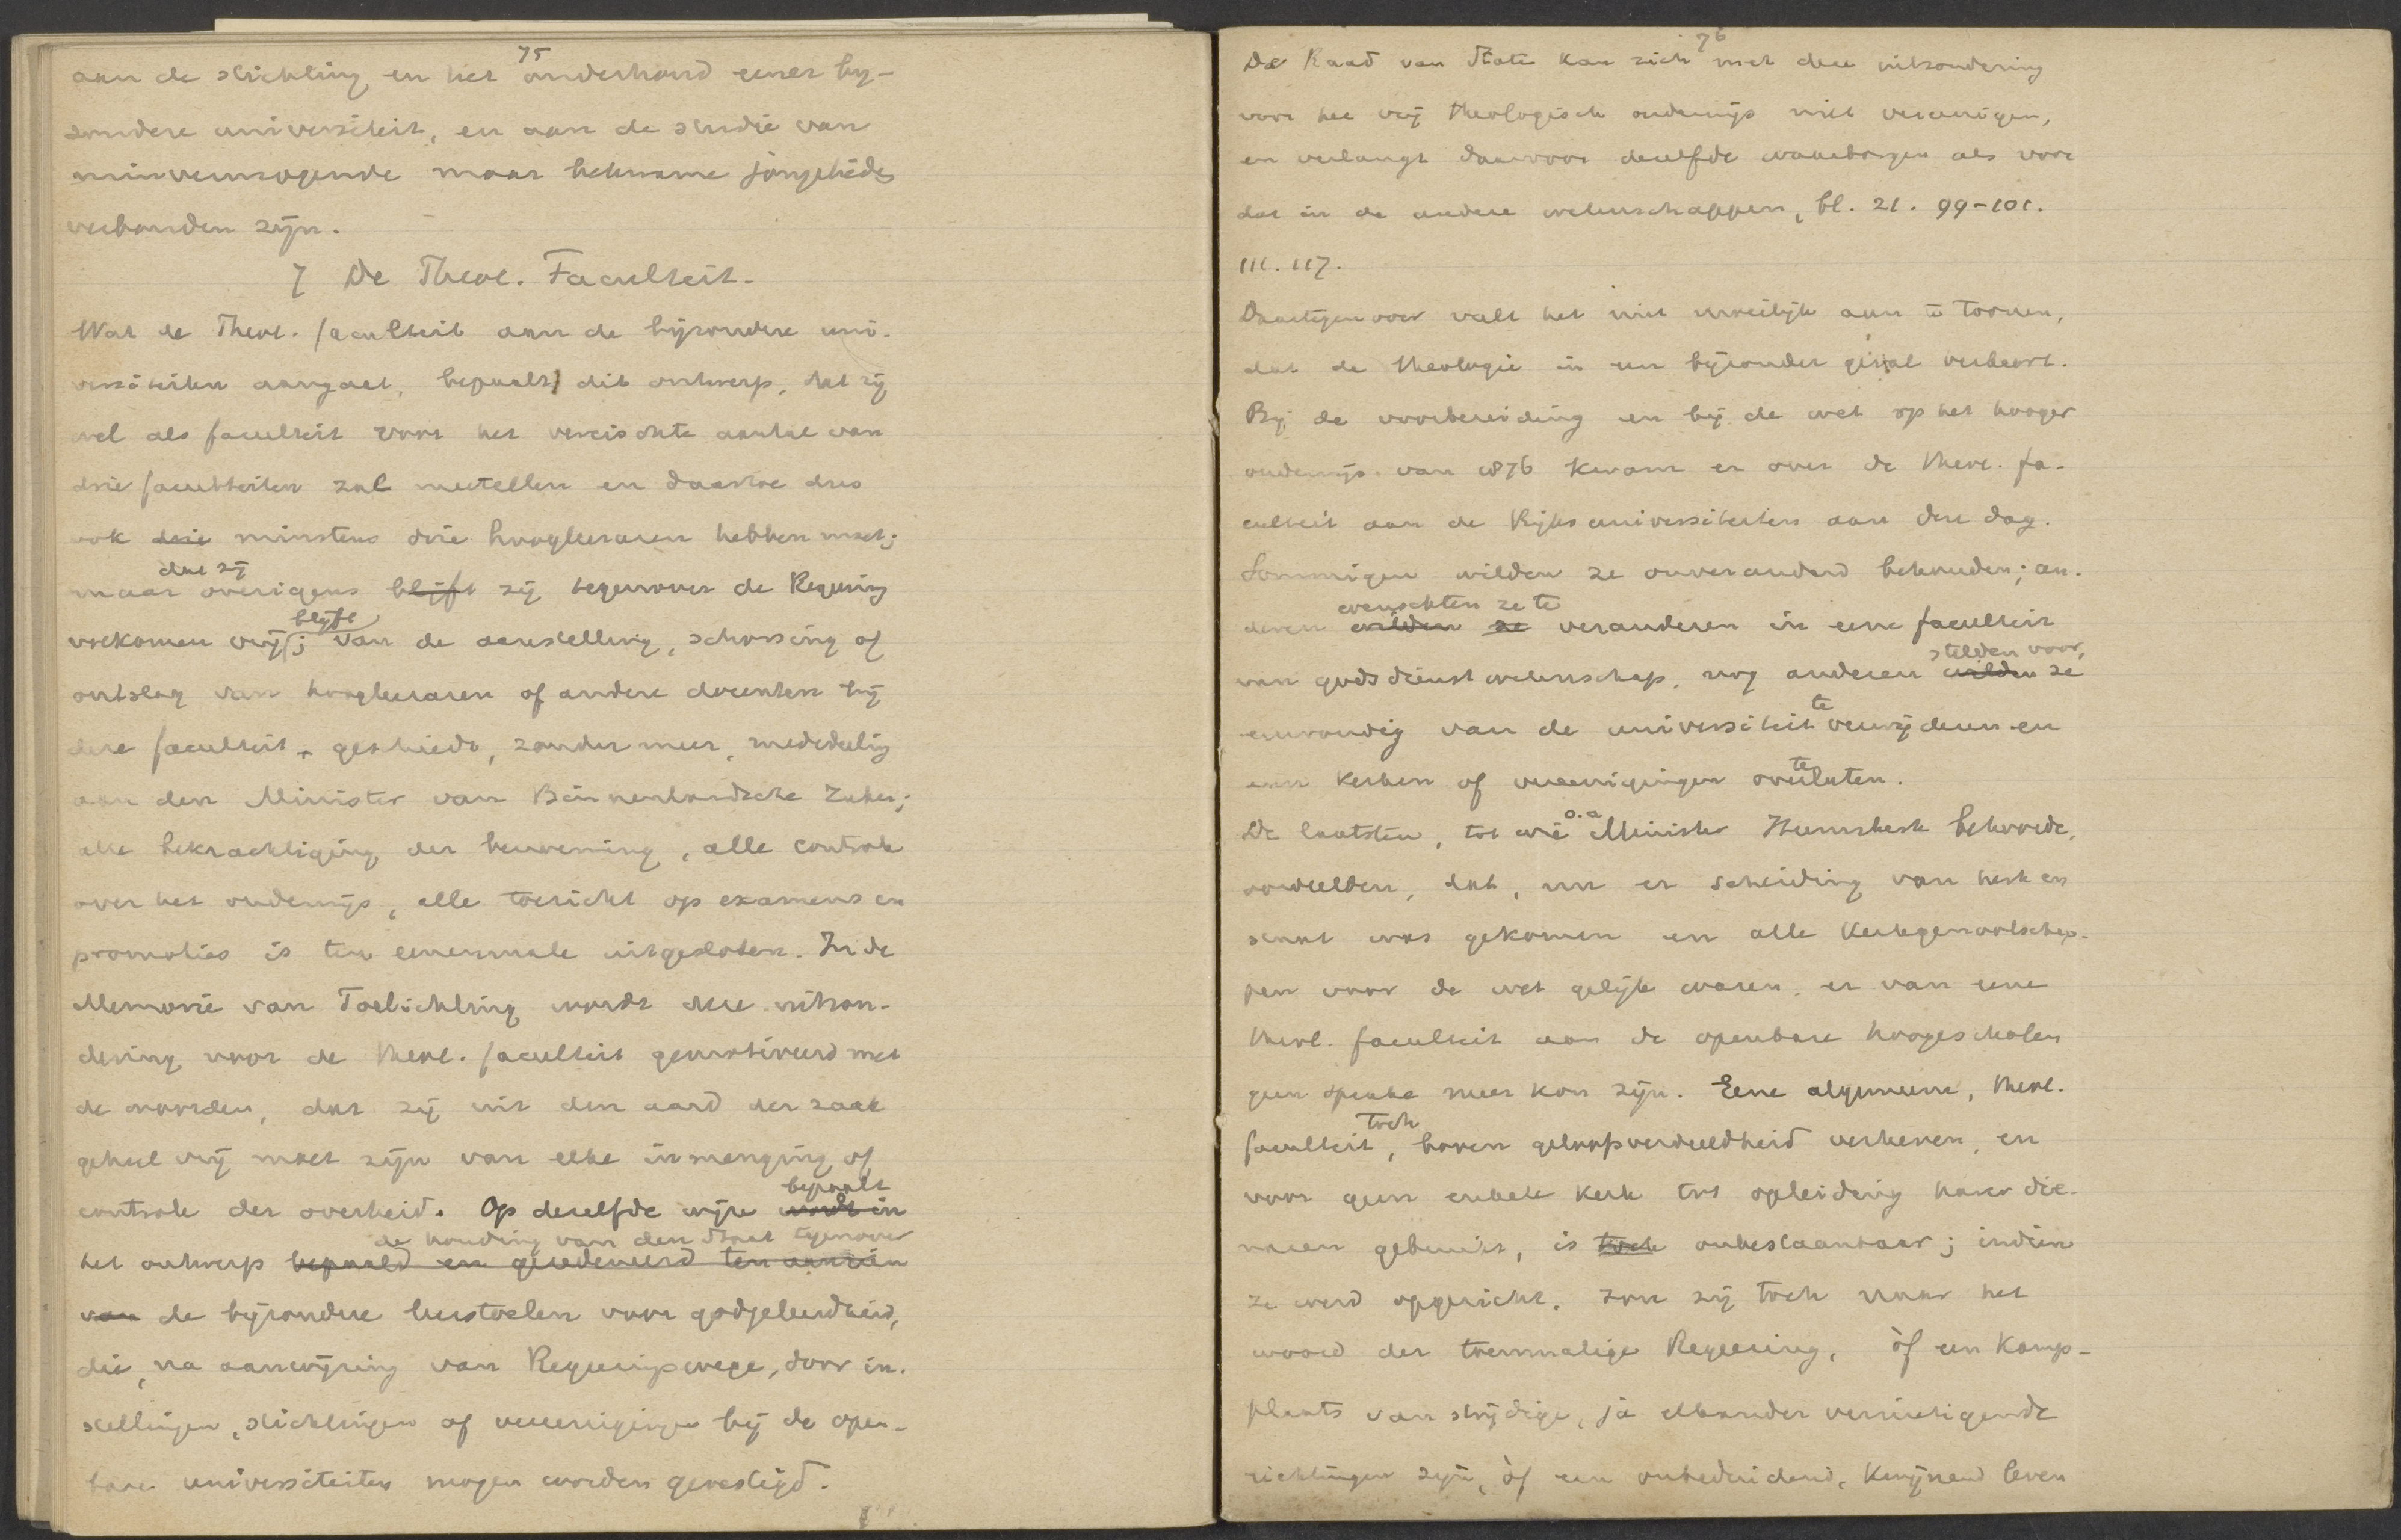 75
aan de stichting en het onderhoud eener bij-
zondere universiteit, en aan de studie van
minvermogende maar bekwame jongelieden
verbonden zijn.
7 De Theol. Faculteit.
Wat de Theol. faculteit aan de bijzondere uni-
versiteiten aangaat, bepaalt dit ontwerp, dat zij
wel als faculteit voor het vereischte aantal van
drie faculteiten zal meetellen en daartoe dus
ook drie minstens drie hoogleeraren hebben moet;
dat zij
maar overigens blijft zij tegenover de Regeering
blijft
volkomen vrij; van de aanstelling, schorsing of
ontslag van hoogleeraren of andere docenten bij
deze faculteit geschiedt, zonder meer, mededeeling
aan den Minister van Binnenlandsche Zaken;
alle bekrachtiging der benoeming, alle controle
over het onderwijs, alle toezicht op examens en
promoties is ten eenenmale uitgesloten. In de
Memorie van Toelichting wordt deze uitzon-
dering voor de theol. faculteit gemotiveerd met
de woorden, dat zij uit den aard der zaak
geheel vrij moet zijn van elke inmenging of
bepaalt
controle der overheid. Op dezelfde wijze wordt in
de houding van den Staat tegenover
het ontwerp bepaald en geredeneerd ten aanzien
van de bijzondere leerstoelen voor godgeleerdheid,
die, na aanwijzing van Regeeringswege, door in-
stellingen, stichtingen of vereenigingen bij de open-
bare universiteiten mogen worden gevestigd.
76
De Raad van State kan zich met deze uitzondering
voor het vrij theologisch onderwijs niet vereenigen,
en verlangt daarvoor dezelfde waarborgen als voor
dat in de andere wetenschappen, bl. 21. 99-101.
111. 117.
Daartegenover valt het niet moeilijk aan te toonen,
dat de theologie in een bijzonder geval verkeert.
Bij de voorbereiding en bij de wet op het hooger
onderwijs van 1876 kwam er over de theol. fa-
culteit aan de Rijksuniversiteiten aan den dag.
Sommigen wilden ze onveranderd behouden; an-
wenschten ze te
deren wilden ze veranderen in eene faculteit
stelden voor,
van godsdienstwetenschap, nog anderen wilden ze
te
eenvoudig van de universiteit verwijderen en
te
aan kerken of vereenigingen overlaten.
o.a
De laatsten, tot wie Minister Heemskerk behoorde,
oordeelden, dat, nu er scheiding van kerk en
staat was gekomen en alle kerkgenootschap-
pen voor de wet gelijk waren, er van eene
theol. faculteit aan de openbare hoogescholen
geen sprake meer kon zijn. Eene algemeene, theol.
toch
faculteit, boven geloofsverdeeldheid verheven, en
voor geen enkele kerk tot opleiding harer die-
naren gebruikt, is toch onbestaanbaar; indien
ze werd opgericht, zou zij toch naar het
woord der toenmalige Regeering, òf een kamp-
plaats van strijdige, ja elkander vernietigende
richtingen zijn, òf een onbeduidend, kwijnend leven